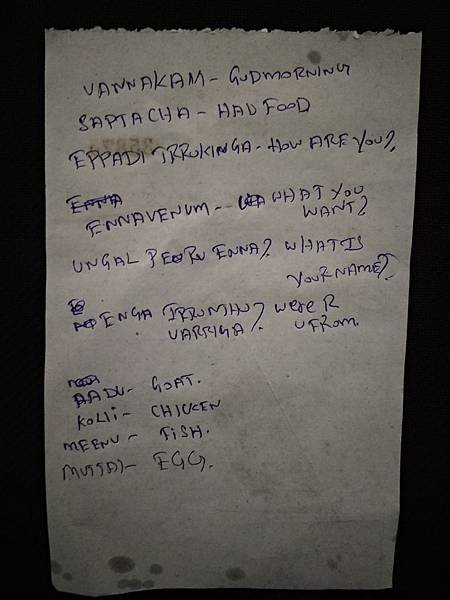 VANNAKAM - GUDMORNING
SAPTACHA - HAD FOOD
EPPADI IRRUKINGA - HOW ARE YOU?
ENNAVENUM - WHAT YOU
WANT?
UNGAL PEORU ENNA? WHAT IS
YOUR NAME?
ENGA IRRUNTHU? WERE R
VARRIGA? U FROM.
AADU - GOAT.
KOLLI - CHICKEN
MEENU - FISH.
MUTTAI - EGG.